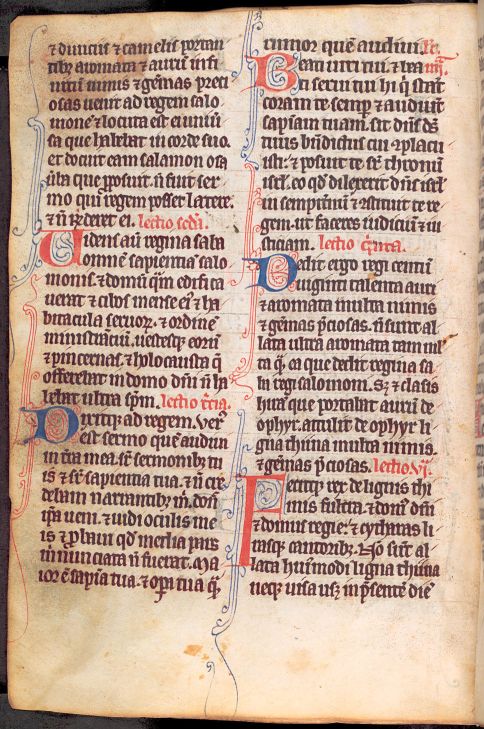 ⁊ diuitiis ⁊ camelis portan
tibꝫ aromata ⁊ aurum infi
nitum nimis ⁊ gēmas preci
osas uenit ad regem salo
monē ⁊ locuta est ei uniūͥ
sa que habebat in corde suo.
et docuit eam salamon oīa
ūba que ꝓposuit. n̄ fuit ser
mo qui regem posset latere.
⁊ n̄ rn̄deret ei. lectio scd̓a.
Uidens aū regina saba
omnem̄ sapientia salo
monis. ⁊ domū quͣm edifica
uerat ⁊ cibos mense eiꝰ ⁊ ha
bitacula seruoꝝ. ⁊ ordinē
ministrāciū. uestesqꝫ eorū
⁊ pincernas. ⁊ holocausta q̄
offerebat in domo dn̄i n̄ ha
bebat ultra sp̄m. lectio t̓cia.
Dixitqꝫ ad regem. Ver
est sermo quē audiui
in t̓ra mea. sr̄ sermonibꝫ tu
is ⁊ sr̄ sapientia tua. ⁊ n̄ cre
debam narrantibꝫ m̄. donͨ
ip̄a ueni. ⁊ uidi oculis me
is ⁊ ꝓbaui qd̓ media pars
m̄ nunciata n̄ fuerat. Ma
ior ē sap̄ia tua. ⁊ oꝑa tua q̄ꝫ
rumor quē audiui. lc̄.
Beati uiri tui. ⁊ bea iiijͣ.
ti serui tui hi qͥ stāt
coram te semꝑ ⁊ audiūt
sap̄iam tuam. sit dn̄s ds̄
tuus bn̄dictus cui ꝯplacu
isti. ⁊ posuit te sr̄ thronum
isrl̄. eo qd̓ dilexerit dn̄s isrl̄
in sempitnū ⁊ ꝯstituit te re
gem. ut faceres iudiciū ⁊ iu
sticiam. lectio qͥnta.
Dedit ergo regi centū
uiginti talenta auri
⁊ aromata multa nimis
⁊ gēmas p̄ciosas. n̄ sunt al
lata ultra aromata tam ml̓
ta qͣ̄. ea que dedit regina sa
ba regi salomoni. Sꝫ ⁊ classis
hirā que portabat aurū de
ophyr. attulit de ophyr li
gna thina multa nimis.
⁊ gēmas p̄ciosas. lectio. vi.
Fecitqꝫ rex de lignis thi
inis fulcra. ⁊ domꝰ dn̄i
⁊ domus regie. ⁊ cytharas li
rasqꝫ cantoribꝫ. Nō sūt al
lata huiꝰmodi ligna thina
neqꝫ uisa usqꝫ in p̄sentē diē